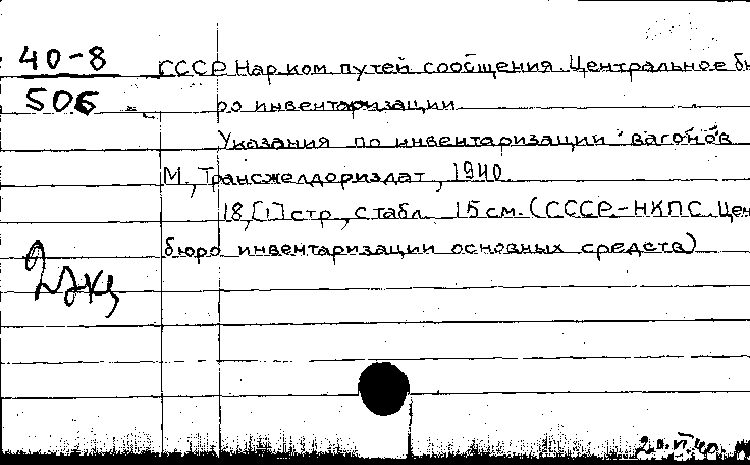 40-8
506
СССР Нар.ком. путей сообщения. Центральное бю
ро инвентаризации.
Указания по инвентаризации вагонов
М., Трансжелдориздат, 1940.
18,[1] стр., с табл. 15 см. (СССР-НКПС. Цен
бюро инвентаризации основных средств)
2 экз
20.VI.40